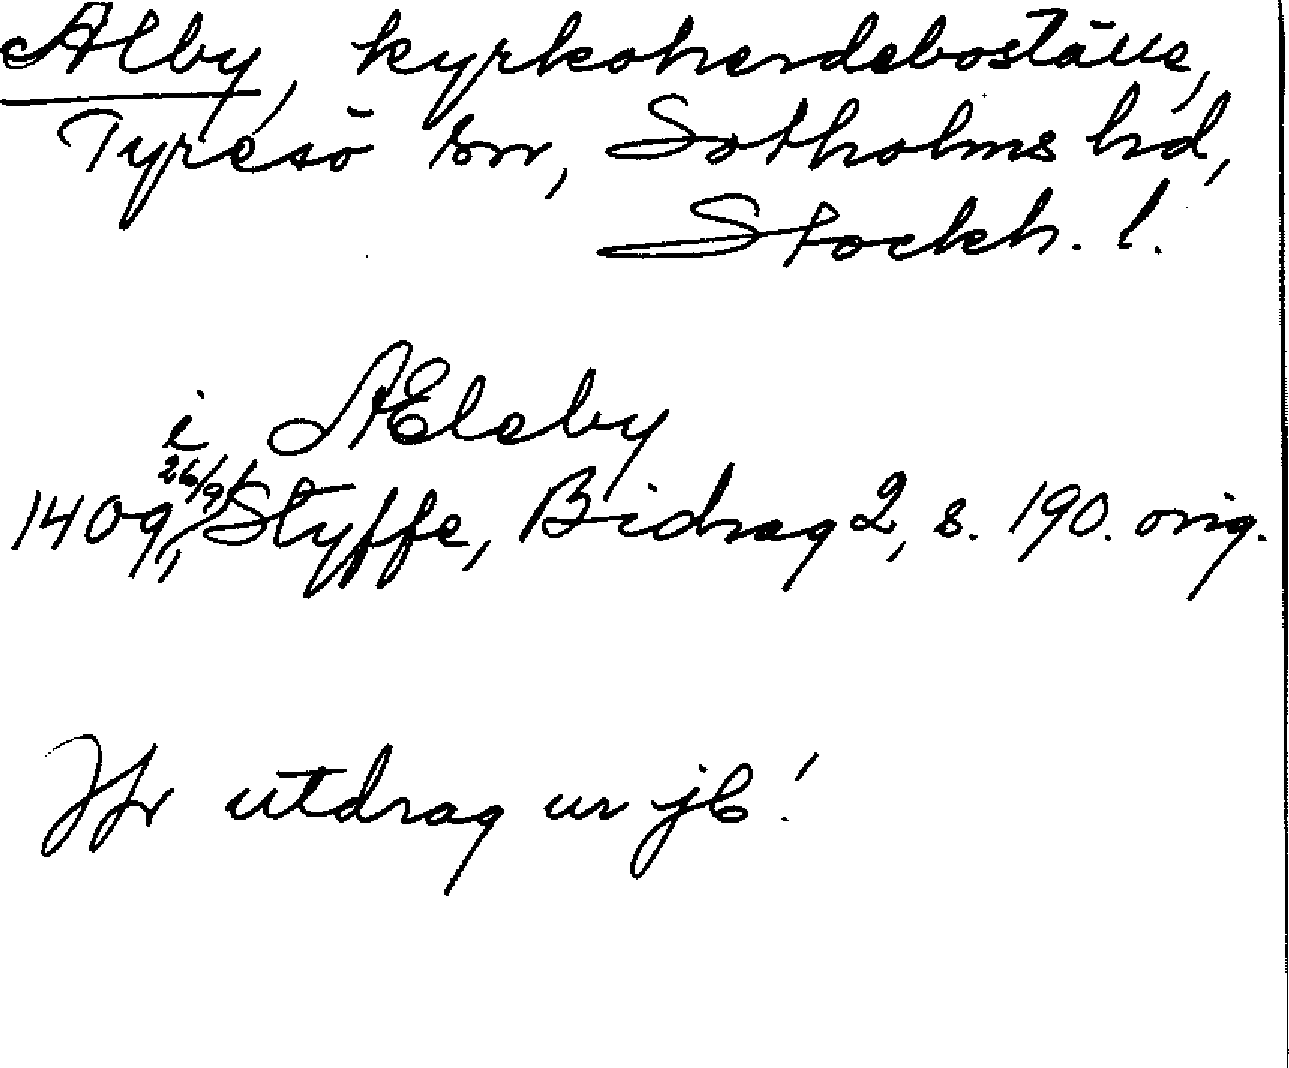 Alby, kyrkoherdeboställe,
Tyresö sn, Sotholms hd,
Stockh. l.
i AEleby
1409 26/9, Styffe, Bidrag 2, s. 190. orig.
Jfr utdrag ur jb!